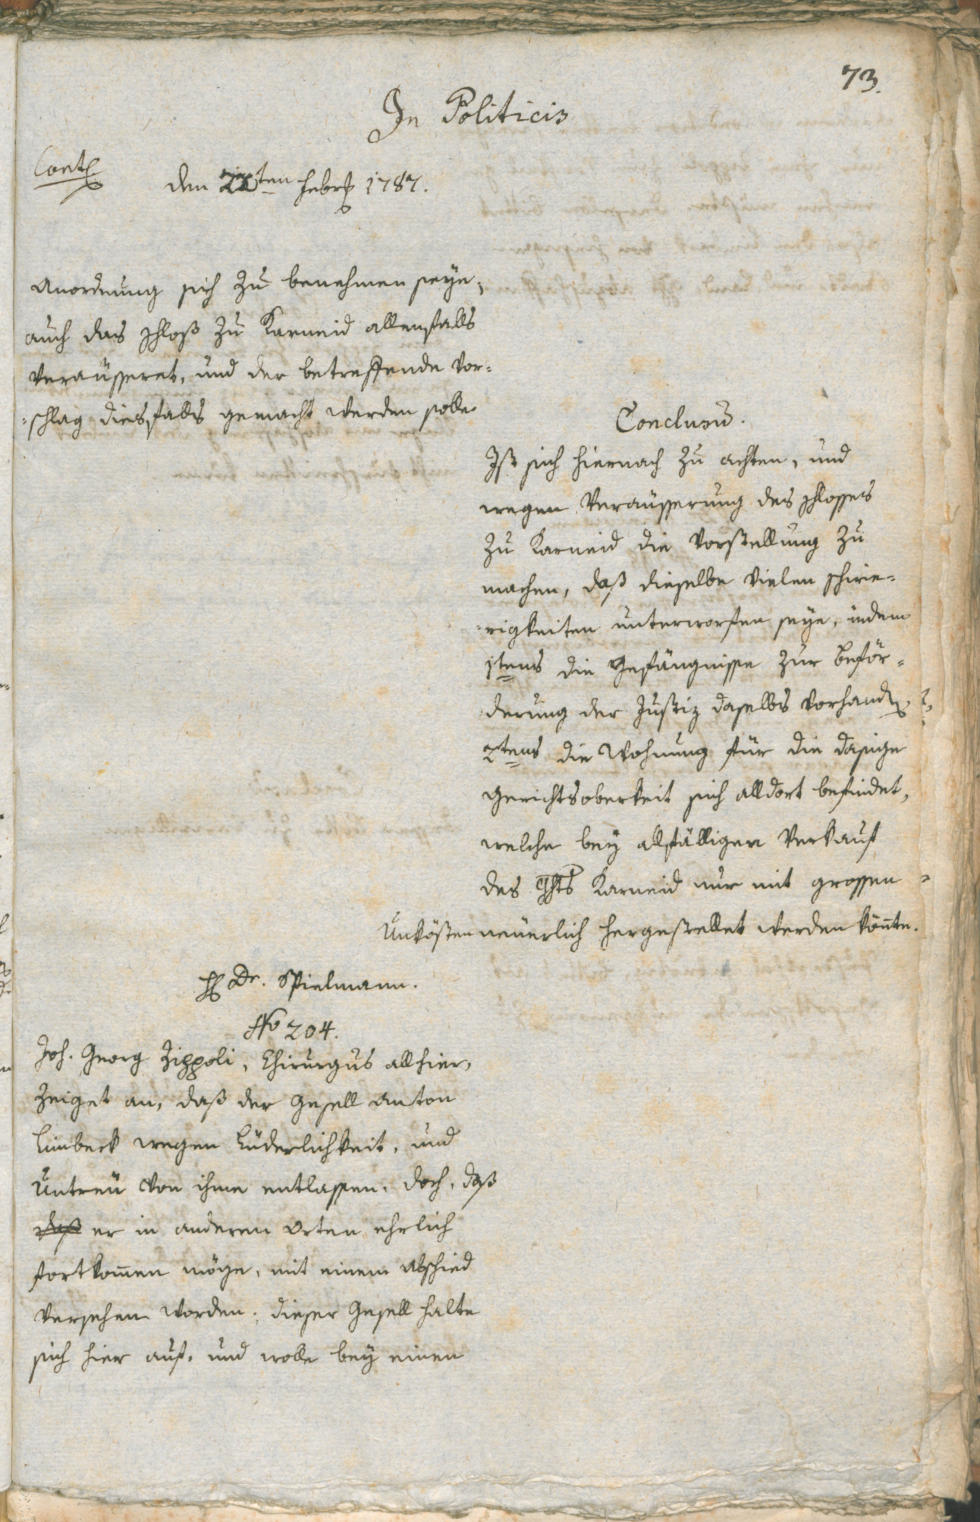 73.
In Politicis
Contin
den 22ten Febr 1787.
Anordnung sich zu benehmen seye,
auch das schloß zu Karneid allenfalls
veräusseret, und der betreffende Vor=
=schlag diesfalls gemacht werden solle
Conclusū.
Ist sich hiernach zu achten, und
wegen Veräusserung des schlosses
zu Karneid die Vorstellung zu
machen, daß dieselbe vielen schwie=
=rigkeiten unterworfen seye, indem
1tens die Gefängnisse zur Beför=
derung der Justiz daselbs vorhanden
2tens die Wohnung für die dasige
Gerichtsoberkeit sich alldort befindet,
welche bey allfälligen Verkauf
des Karneid nur mit grossen
Unkösten neuerlich hergestellet werden könte.
H Dr. Spielmann.
No 204.
Joh. Georg Zippoli, Chirurgus allhier,
Zeiget an, daß der Gesell Anton
Limbeck wegen Lüderlichkeit, und
Untreu von ihme entlassen, doch, daß
daß er in anderen Orten ehrlich
fortkomen möge, mit einem Abschied
versehen worden; dieser Gesell halte
sich hier auf, und wolle bey einen